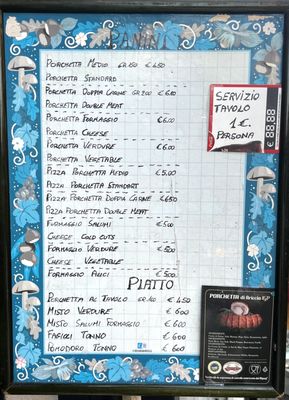 PANINI
PORCHETTA MEDIO GR.150 € 4.50
PORCHETTA STANDARD
PORCHETTA DOPPIA CARNE GR.200 € 6.00
PORCHETTA DOUBLE MEAT
PORCHETTA FORMAGGIO € 6.00
PORCHETTA CHEESE
PORCHETTA VERDURE € 6.00
PORCHETTA VEGETABLE
PIZZA PORCHETTA MEDIO € 5.00
PIZZA PORCHETTA STANDART
PIZZA PORCHETTA DOPPIA CARNE € 6.50
PIZZA PORCHETTA DOUBLE MEAT
FORMAGGIO SALUMI € 5.00
CHEESE COLD CUTS
FORMAGGIO VERDURE € 5.00
CHEESE VEGETABLE
FORMAGGIO ALICI € 5.00
PIATTO
PORCHETTA AL TAVOLO GR.100 € 4.50
MISTO VERDURE € 6.00
MISTO SALUMI FORMAGGIO € 6.00
FAGIOLI TONNO € 6.00
POMODORO TONNO € 6.00
SERVIZIO
TAVOLO
1 €.
PERSONA
€ 88,88
PORCHETTA di Ariccia IGP